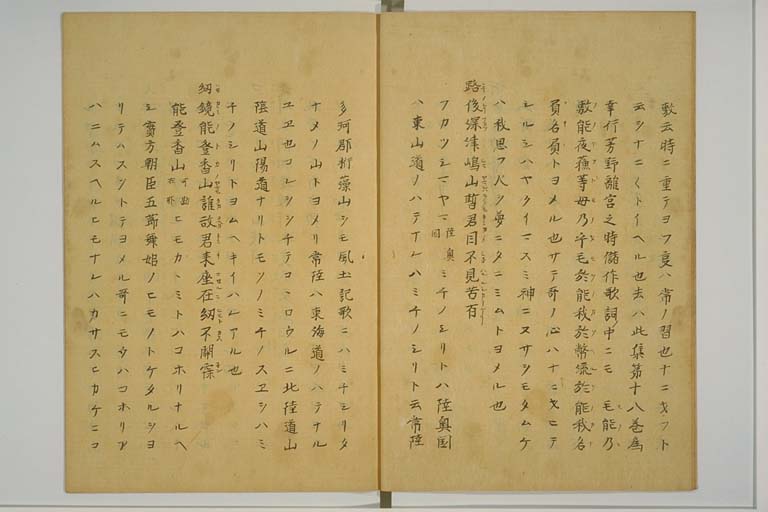 敷云時ニ重テヨフ㕝ハ常ノ習也ナニヲフト
云シナニクトイヘル也去ハ此集第十八巻為
幸行芳野離宮之時儲作歌詞中ニモ毛能乃
敷能夜蘓等母乃乎毛於能我於幣流於能我名
負名負トヨメル也サテ哥ノ心ハナニヲヒテ
シルシハヤクイマスミ神ニヌサツモタムケ
ハ我思フ人ヲ夢ニタニミムトヨメル也
路後深津嶋山暫君目不見苦有
フカツシマヤマ陸奥国ミチノシリトハ陸奥国
ハ東山道ノハテナレハミチノシリト云常陸
多珂郡桁藻山シモ風土記歌ニハミチシリタ
ナメノ山トヨメリ常陸ハ東海道ノハテナル
ユヱ也コレシシチテコヽロウルニ北陸道山
陰道山陽道ナリトモソノミチノスヱヲハミ
チノシリトヨムヘキイハレアル也
紉鏡能登香山誰故君来座在紉不開寐
能登香山 ヒモカヽミトハコホリナルヘ
シ寛方朝臣五節舞姫ノヒモノトケタルヲヨ
リテハスツトテヨメル哥ニモウハコホリア
ハニムスヘルヒモナレハカサスヒカケニコ